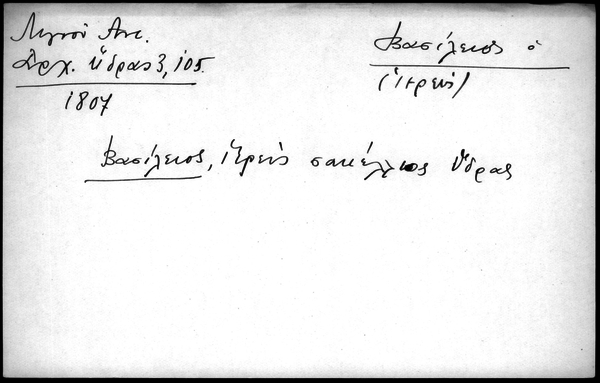 Λιγνοῦ Αντ.
Ἀρχ. Ὕδρας 3, 105.
1807
Βασίλειος ὁ
(ἱερεύς)
Βασίλειος, ἱερεύς σακέλλιος Ὕδρας